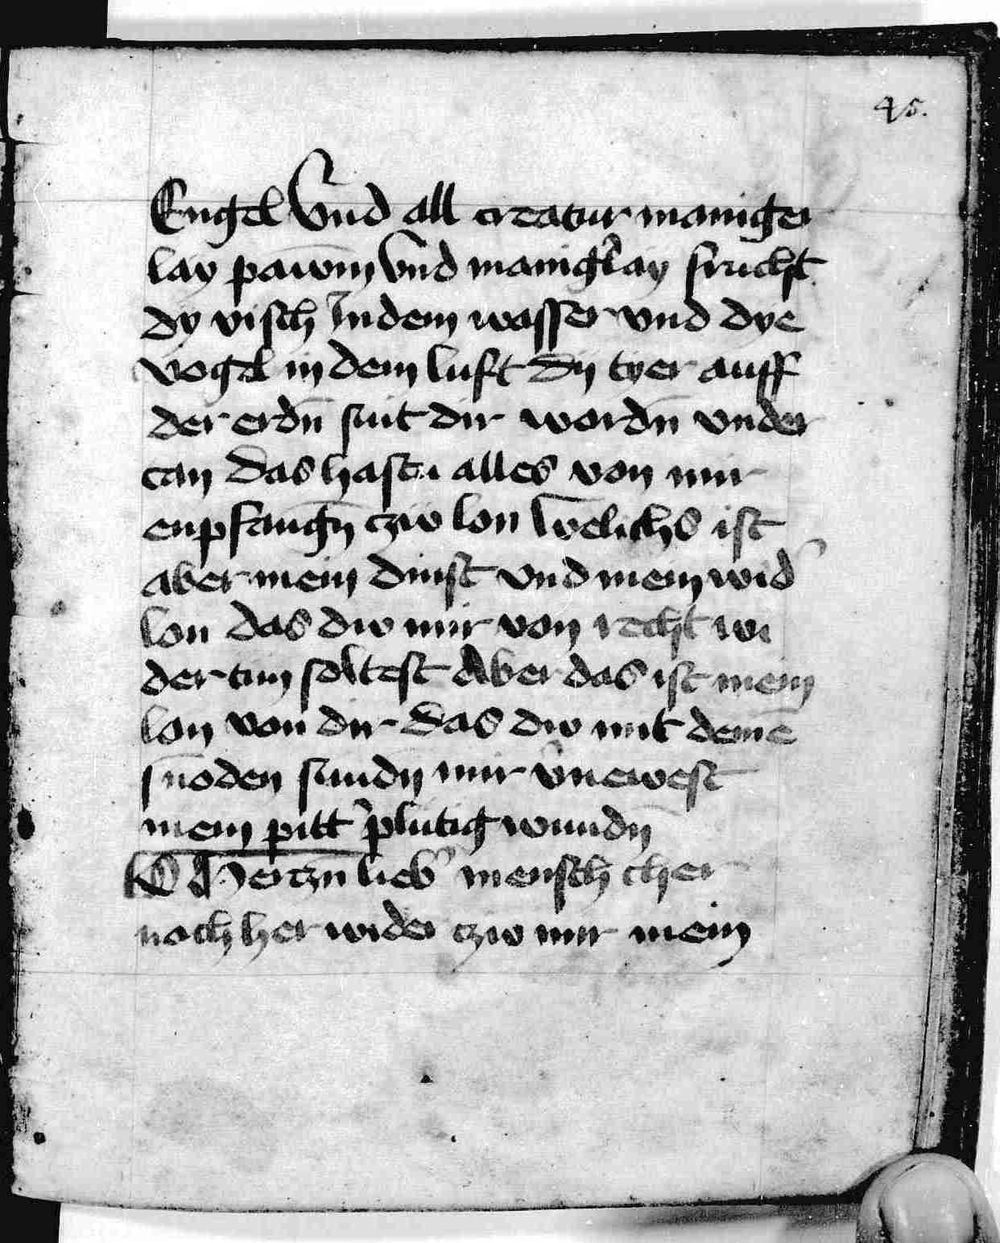 45.
Engel Vnd all creatur maniger
lay pawm Vnd manigslay frucht
dy visch Indem wasser vnd dye
vogel in dem luft dy tyer auff
der erdn̄ sint dir wordn̄ vnder
tan das hastu alles von mir
enpfangn̄ czw lon Welichs ist
aber mein dinst vnd mein wid'
lon das dw mir von recht wi
der tun soltest Aber das ist mein
lon von dir das dw mit deinē
snoden sundn̄ mir v'newest
mein pitt' plutig wundn̄
O Hertzn̄ lieb' mensch cher
noch her wider czw mir mein